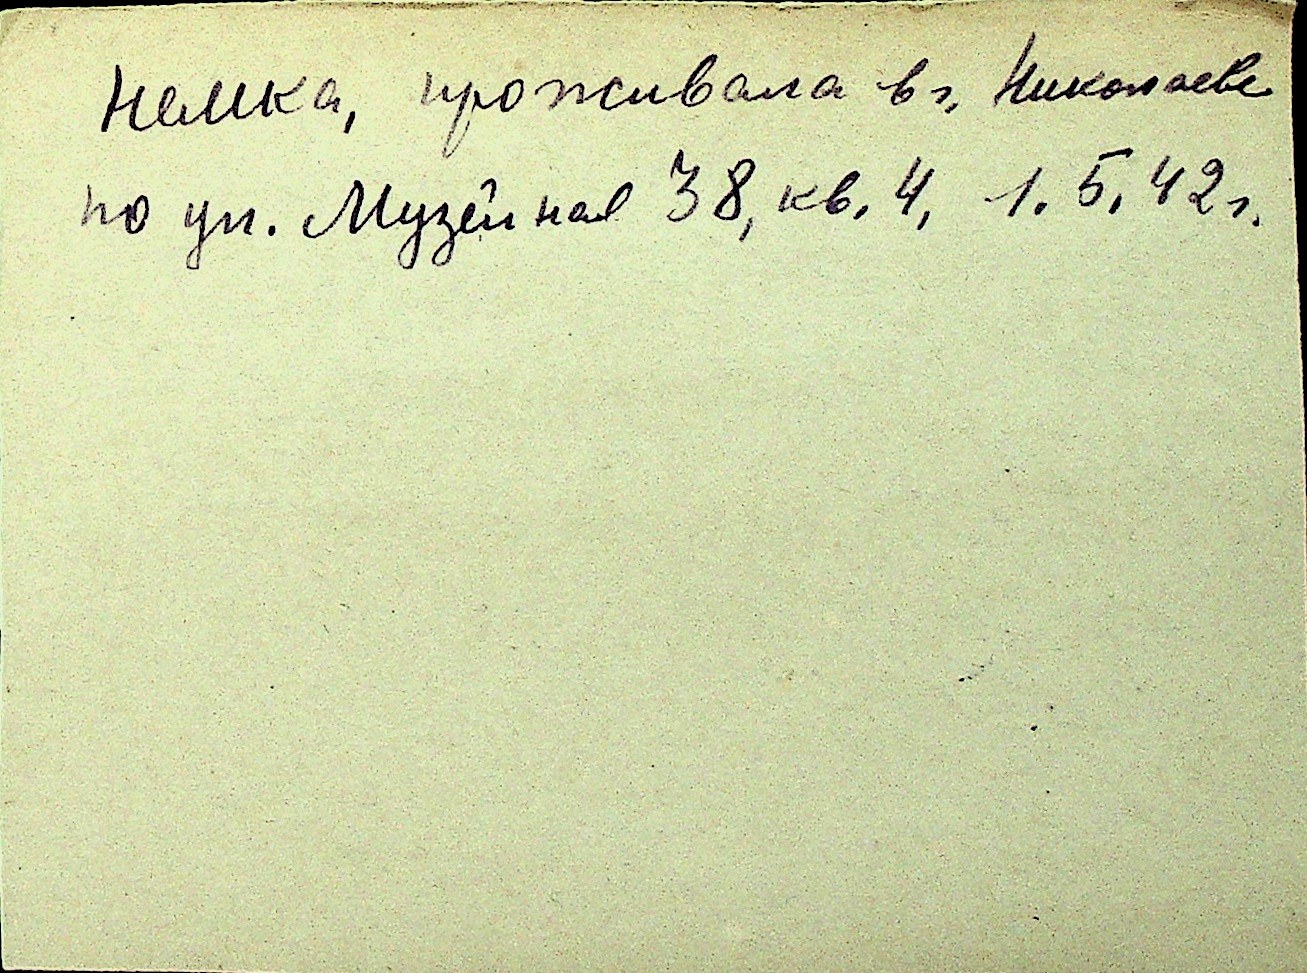 Немка, проживала в г. Николаеве
по ул. Музейная 38, кв. 4, 1.5.42 г.